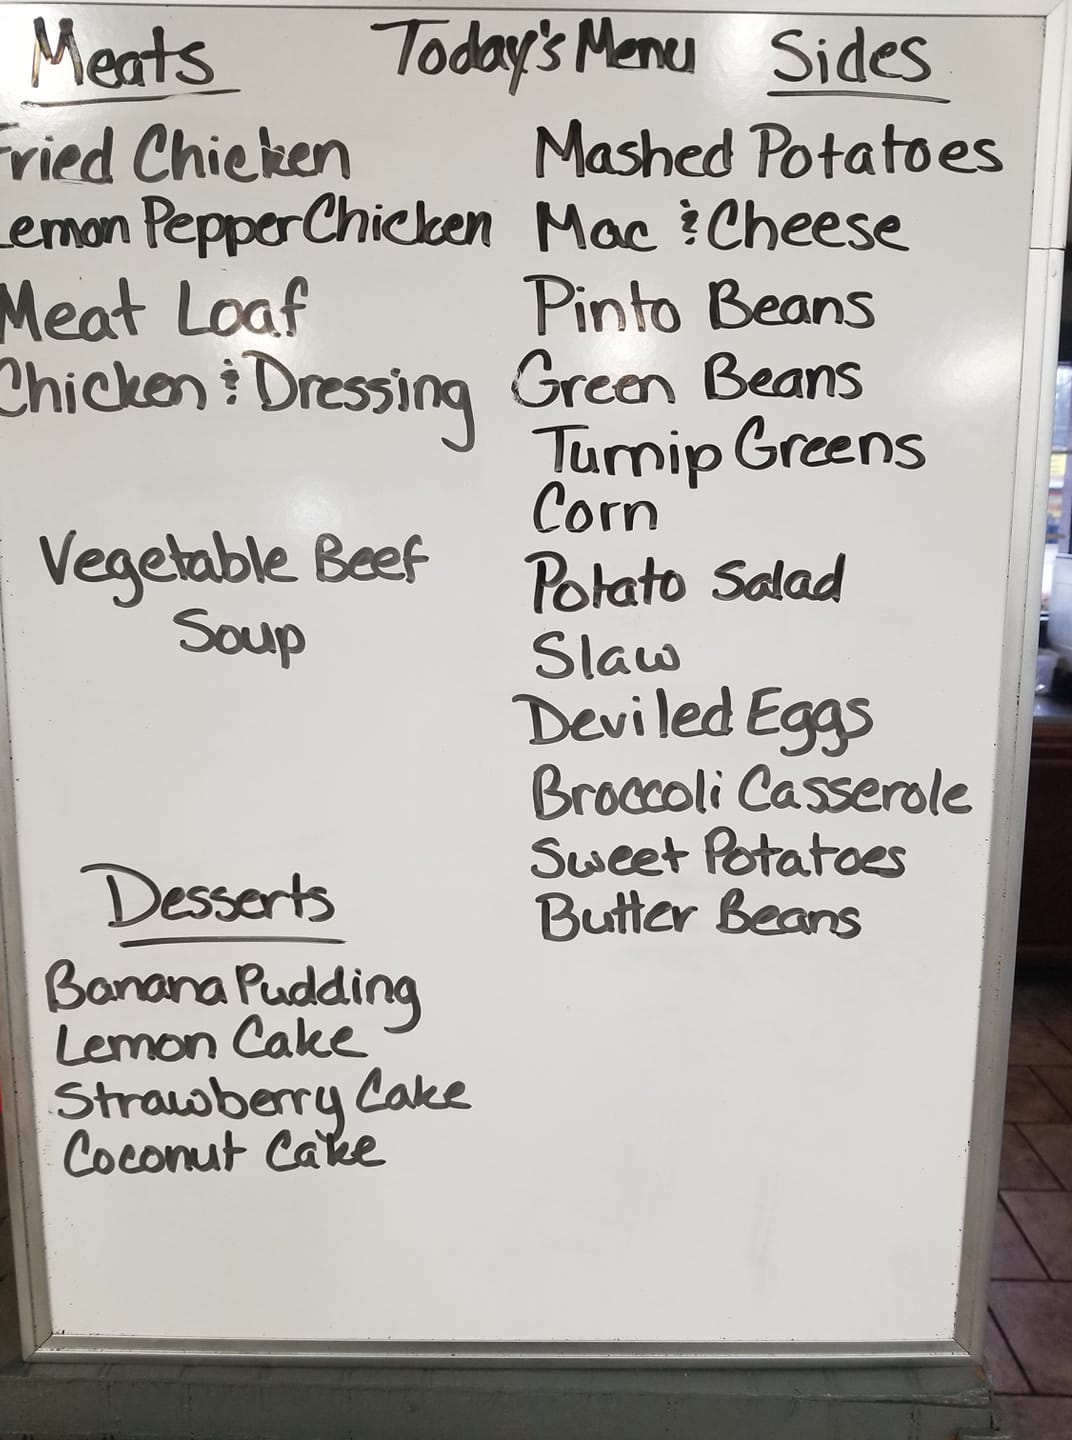 Today's Menu
Meats
Fried Chicken
Lemon Pepper Chicken
Meat Loaf
Chicken & Dressing
Vegetable Beef
Soup
Desserts
Banana Pudding
Lemon Cake
Strawberry Cake
Coconut Cake
Sides
Mashed Potatoes
Mac & Cheese
Pinto Beans
Green Beans
Turnip Greens
Corn
Potato Salad
Slaw
Deviled Eggs
Broccoli Casserole
Sweet Potatoes
Butter Beans